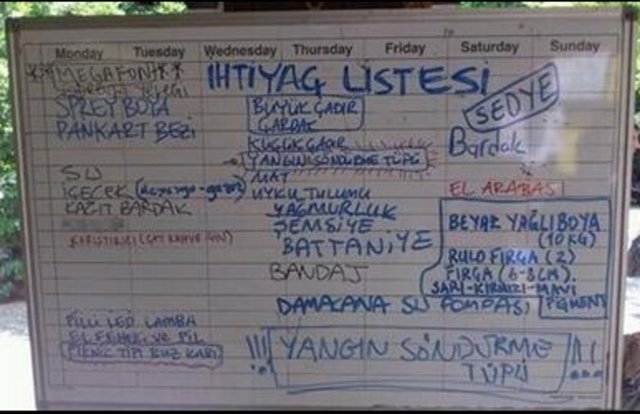 Monday Tuesday Wednesday Thursday Friday Saturday Sunday
İHTİYAÇ LİSTESİ
**MEGAFON**
SPREY BOYA
PANKART BEZİ
SU
İÇECEK
KAĞIT BARDAK
KARIŞTIRICI (ÇAY KAHVE İÇİN)
PİLLİ LED LAMBA
EL FENERİ VE PİL
PİKNİK TİPİ BUZ KABI
BÜYÜK ÇADIR
ÇARDAK
KÜÇÜK ÇADIR
YANGIN SÖNDÜRME TÜPÜ
MAT
UYKU TULUMU
YAĞMURLUK
ŞEMSİYE
BATTANİYE
BANDAJ
DAMACANA SU POMPASI
SEDYE
Bardak
EL ARABASI
BEYAZ YAĞLI BOYA
(10 KG)
RULO FIRÇA (2)
FIRÇA (6-8CM).
SARI-KIRMIZI-MAVİ
PİGMENT
!!! YANGIN SÖNDÜRME !!!
TÜPÜ